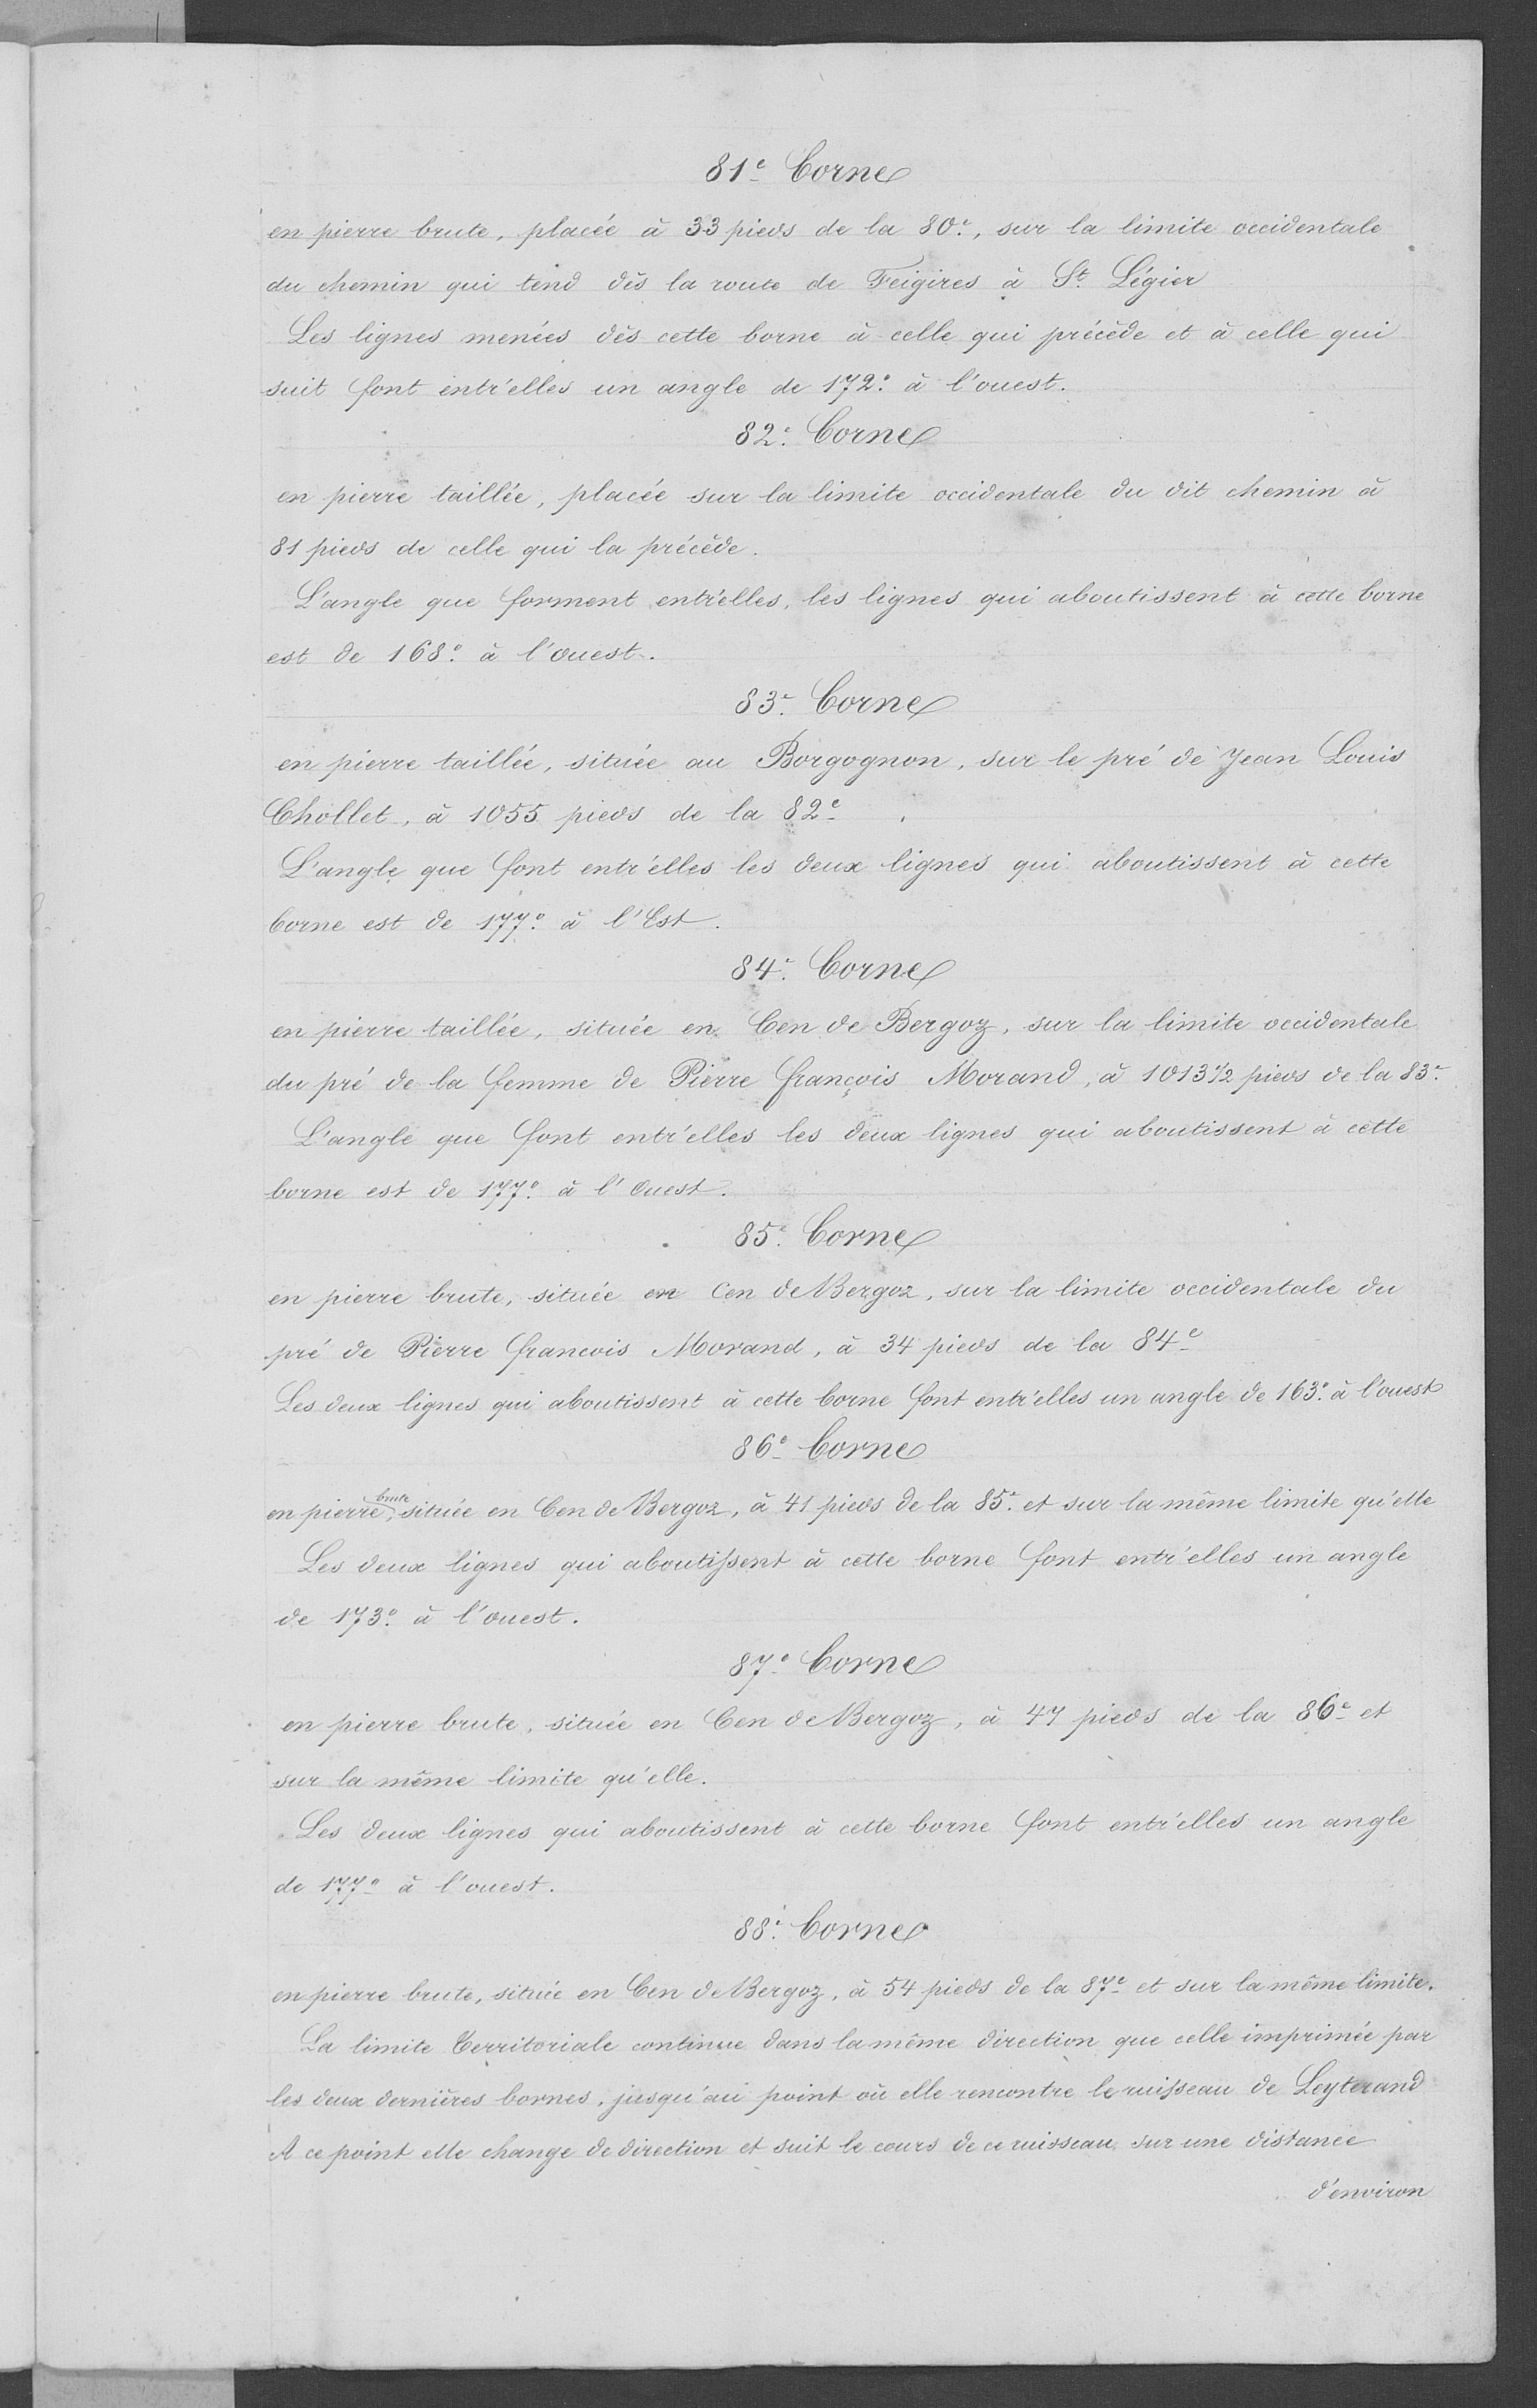 81e Borne
en pierre brute, placée à 33 pieds de la 80e, sur la limite occidentale
du chemin qui tend dès la route de Feigires à St Légier
Les lignes menées dès cette borne à celle qui précède et à celle qui
suit font entr'elles un angle de 172° à l'ouest.
82e Borne
en pierre taillée, placée sur la limite occidentale du dit chemin à
81 pieds de celle qui la précède.
L'angle que forment entr'elles, les lignes qui aboutissent à cette borne
est de 168° à l'ouest.
83e Borne
en pierre taillée, située au Borgognon, sur le pré de Jean Louis
Chollet, à 1055 pieds de la 82e.
L'angle que font entr'elles les deux lignes qui aboutissent à cette
borne est de 177° à l'Est.
84e Borne
en pierre taillée, située en Cen de Bergoz, sur la limite occidentale
du pré de la femme de Pierre françois Morand, à 1013 1/2 pieds de la 83e
L'angle que font entr'elles les deux lignes qui aboutissent à cette
borne est de 177° à l'Ouest.
85e Borne
en pierre brute, située en Cen de Bergoz, sur la limite occidentale du
pré de Pierre francois Morand, à 34 pieds de la 84e
Les deux lignes qui aboutissent à cette borne font entr'elles un angle de 163° à l'ouest
86e Borne
en pierre brute, située en Cen de Bergoz, à 41 pieds de la 85e et sur la même limite qu'elle
Les deux lignes qui aboutissent à cette borne font entr'elles un angle
de 173° à l'ouest.
87e Borne
en pierre brute, située en Cen de Bergoz, à 47 pieds de la 86e et
sur la même limite qu'elle.
Les deux lignes qui aboutissent à cette borne font entr'elles un angle
de 177° à l'ouest.
88e Borne
en pierre brute, située en Cen de Bergoz, à 54 pieds de la 87e et sur la même limite.
La limite territoriale continue dans la même direction que celle imprimée par
les deux dernières bornes, jusqu'au point où elle rencontre le ruisseau de Leyterand
A ce point elle change de direction et suit le cours de ce ruisseau, sur une distance
d'environ